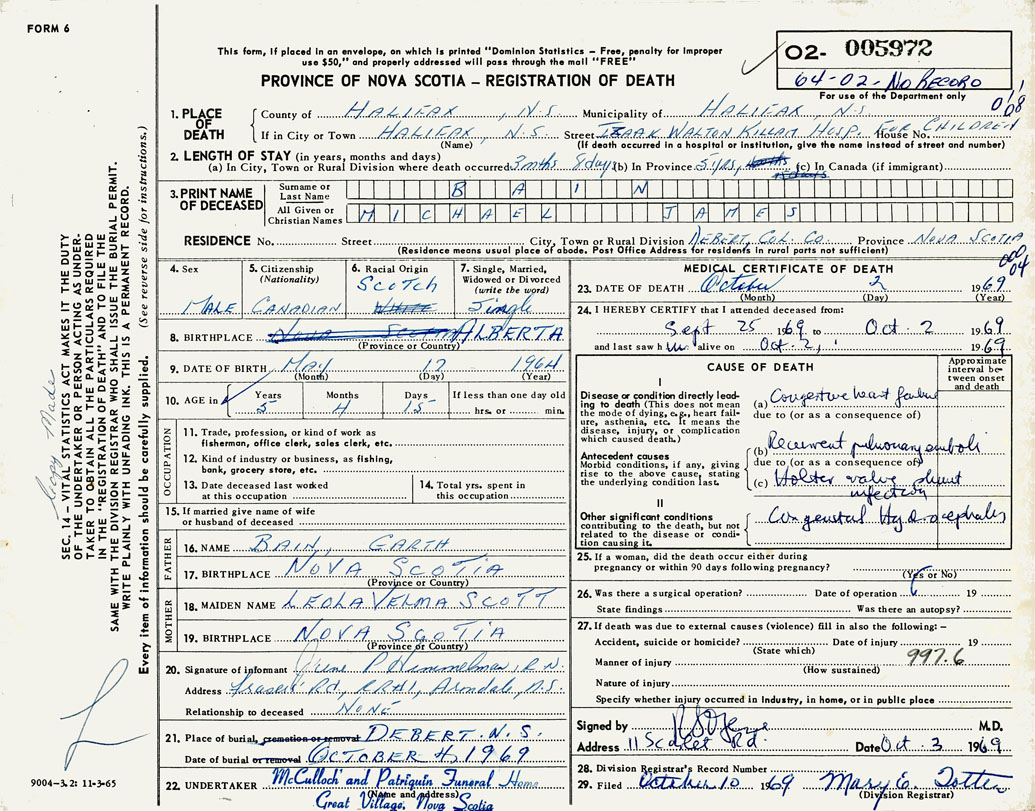 FORM 6
This form, if placed in an envelope, on which is printed "Dominion Statistics – Free, penalty for improper
use $50," and properly addressed will pass through the mail "FREE"
PROVINCE OF NOVA SCOTIA – REGISTRATION OF DEATH
O2- 005972
64-02-No RECORD
For use of the Department only
1. PLACE OF DEATH
County of HALIFAX, N.S. Municipality of HALIFAX, N.S.
If in City or Town HALIFAX, N.S. Street IZAAK WALTON KILLAM HOSP. FOR CHILDREN House No.
(Name) (If death occurred in a hospital or institution, give the name instead of street and number)
2. LENGTH OF STAY (in years, months and days)
(a) In City, Town or Rural Division where death occurred 3 mths 8 days (b) In Province 5 yrs, (c) In Canada (if immigrant)
3. PRINT NAME OF DECEASED
Surname or Last Name BAIN
All Given or Christian Names MICHAEL JAMES
RESIDENCE No. Street City, Town or Rural Division DEBERT, COL. CO. Province NOVA SCOTIA
(Residence means usual place of abode. Post Office Address for residents in rural parts not sufficient)
4. Sex MALE
5. Citizenship (Nationality) CANADIAN
6. Racial Origin Scotch WHITE
7. Single, Married, Widowed or Divorced (write the word) Single
8. BIRTHPLACE NOVA SCOTIA ALBERTA
(Province or Country)
9. DATE OF BIRTH May 17 1964
(Month) (Day) (Year)
10. AGE in Years 5 Months 4 Days 15 If less than one day old hrs. or min.
OCCUPATION
11. Trade, profession, or kind of work as fisherman, office clerk, sales clerk, etc.
12. Kind of industry or business, as fishing, bank, grocery store, etc.
13. Date deceased last worked at this occupation
14. Total yrs. spent in this occupation
15. If married give name of wife or husband of deceased
FATHER
16. NAME BAIN, GARTH
17. BIRTHPLACE NOVA SCOTIA
(Province or Country)
MOTHER
18. MAIDEN NAME LEOLA VELMA SCOTT
19. BIRTHPLACE NOVA SCOTIA
(Province or Country)
20. Signature of informant June P. Himmelman, R.N.
Address Fraser Rd, RR#1, Armdale, N.S.
Relationship to deceased NONE
21. Place of burial, cremation or removal DEBERT. N.S.
Date of burial or removal OCTOBER 4, 1969
22. UNDERTAKER McCulloch and Patriquin Funeral Home
(Name and address)
Great Village, Nova Scotia
MEDICAL CERTIFICATE OF DEATH
23. DATE OF DEATH October 2 1969
(Month) (Day) (Year)
24. I HEREBY CERTIFY that I attended deceased from:
Sept 25 1969 to Oct. 2 1969
and last saw him alive on Oct. 2, 1969
CAUSE OF DEATH
Approximate interval between onset and death
I
Disease or condition directly leading to death (This does not mean the mode of dying, e.g., heart failure, asthenia, etc. It means the disease, injury, or complication which caused death.)
(a) Congestive heart failure
due to (or as a consequence of)
Antecedent causes
Morbid conditions, if any, giving rise to the above cause, stating the underlying condition last.
(b) Recurrent pulmonary emboli
due to (or as a consequence of)
(c) Holter valve shunt
infection
II
Other significant conditions contributing to the death, but not related to the disease or condition causing it.
Congenital Hydrocephalus
25. If a woman, did the death occur either during
pregnancy or within 90 days following pregnancy?
(Yes or No)
26. Was there a surgical operation? Date of operation 19
State findings Was there an autopsy?
27. If death was due to external causes (violence) fill in also the following: –
Accident, suicide or homicide? Date of injury 19
(State which)
Manner of injury 997.6
(How sustained)
Nature of injury
Specify whether injury occurred in Industry, in home, or in public place
Signed by M.D.
Address Rd. Date Oct. 3 1969
28. Division Registrar's Record Number
29. Filed October 10 1969 Mary E. Totten
(Division Registrar)
SEC. 14 – VITAL STATISTICS ACT MAKES IT THE DUTY
OF THE UNDERTAKER OR PERSON ACTING AS UNDER-
TAKER TO OBTAIN ALL THE PARTICULARS REQUIRED
IN THE "REGISTRATION OF DEATH" AND TO FILE THE
SAME WITH THE DIVISION REGISTRAR WHO SHALL ISSUE THE BURIAL PERMIT.
WRITE PLAINLY WITH UNFADING INK. THIS IS A PERMANENT RECORD.
Every item of information should be carefully supplied. (See reverse side for instructions.)
Copy Made
9004–3.2: 11-3-65